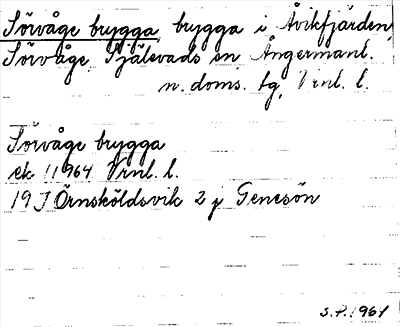 Sörvåge brygga, brygga i Åvikfjärden,
Sörvåge Själevads sn Ångermanl.
n. doms. tg, Vrnl. l.
Sörvåge brygga
ek 11964 Vrnl. l.
19 J Örnsköldsvik 2 j Genesön
S.P. 1964